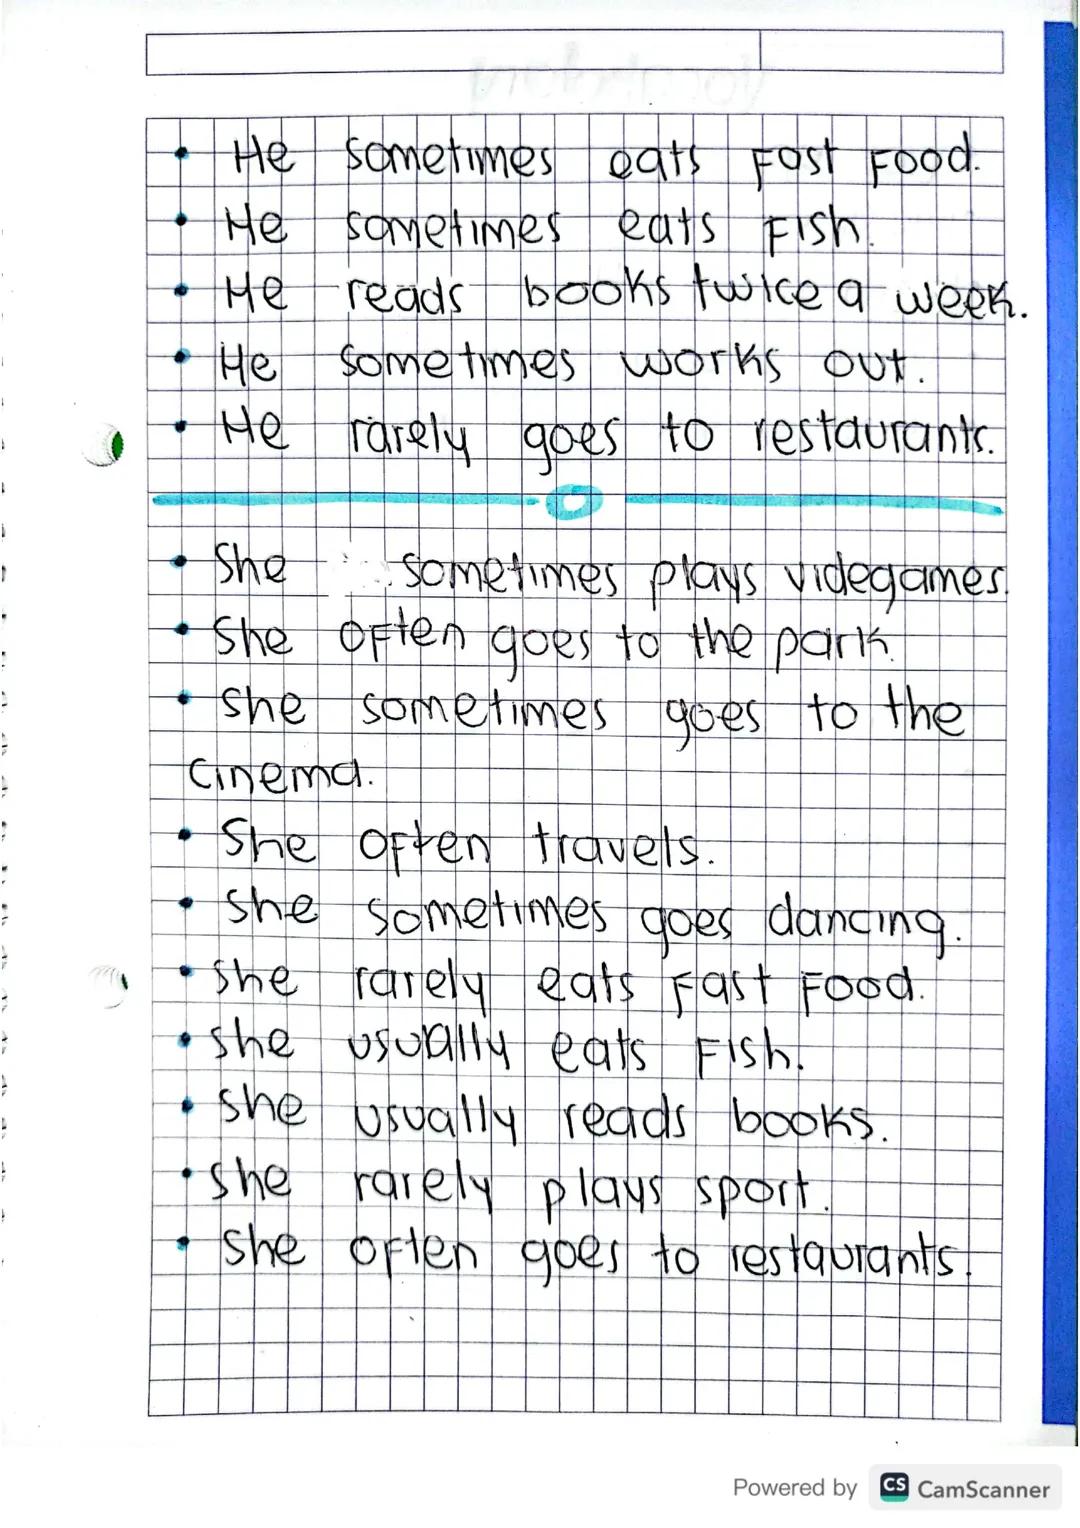 • He sometimes eats Fast Food.
• He sometimes eats Fish.
• He reads books twice a week.
• He sometimes works out.
• He rarely goes to restaurants.
• She sometimes plays videgames.
• She often goes to the park.
• She sometimes goes to the
cinema.
• She often travels.
• She sometimes goes dancing.
• She rarely eats Fast Food.
• She usually eats Fish.
• She usually reads books.
• She rarely plays sport.
• She often goes to restaurants.
Powered by CS CamScanner